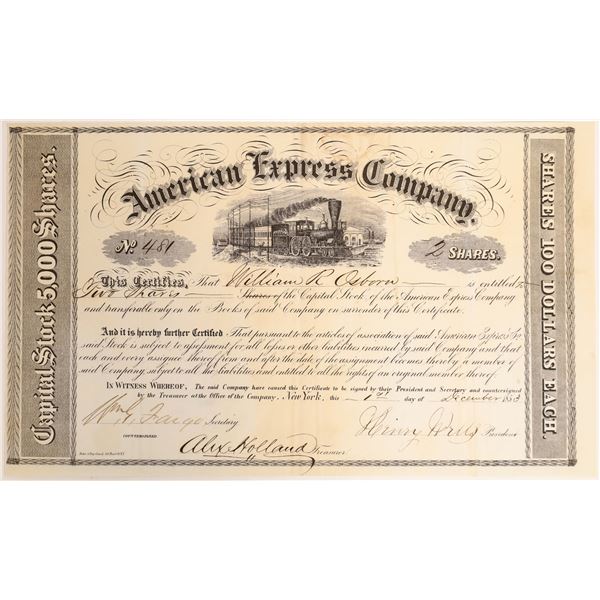 Capital Stock 5,000 Shares.
American Express Company.
No. 481
2 SHARES.
This Certifies, That William R Osborn is entitled to
Two Shares Shares of the Capital Stock of the American Express Company
and transferable only on the Books of said Company on surrender of this Certificate.
And it is hereby further Certified That pursuant to the articles of association of said American Express Co
said Stock is subject to assessment for all losses or other liabilities incurred by said Company and that
each and every assignee thereof from and after the date of the assignment becomes thereby a member of
said Company subject to all the liabilities and entitled to all the rights of an original member thereof.
IN WITNESS WHEREOF, The said Company have caused this Certificate to be signed by their President and Secretary and countersigned
by the Treasurer at the Office of the Company, New York, this 1st day of December 185
Wm G. Fargo Secretary
Henry Wells President
COUNTERSIGNED.
Alex Holland Treasurer
SHARES 100 DOLLARS EACH.